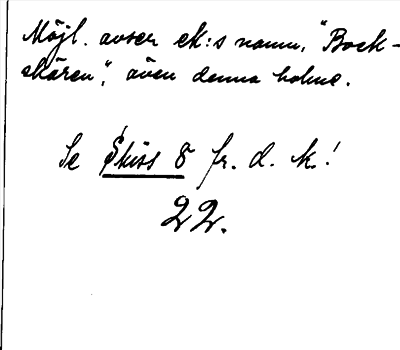 Möjl. avser ek:s namn, "Bock-
skären", även denna holme.
Se Skiss 8 fr. d. k.!
22.